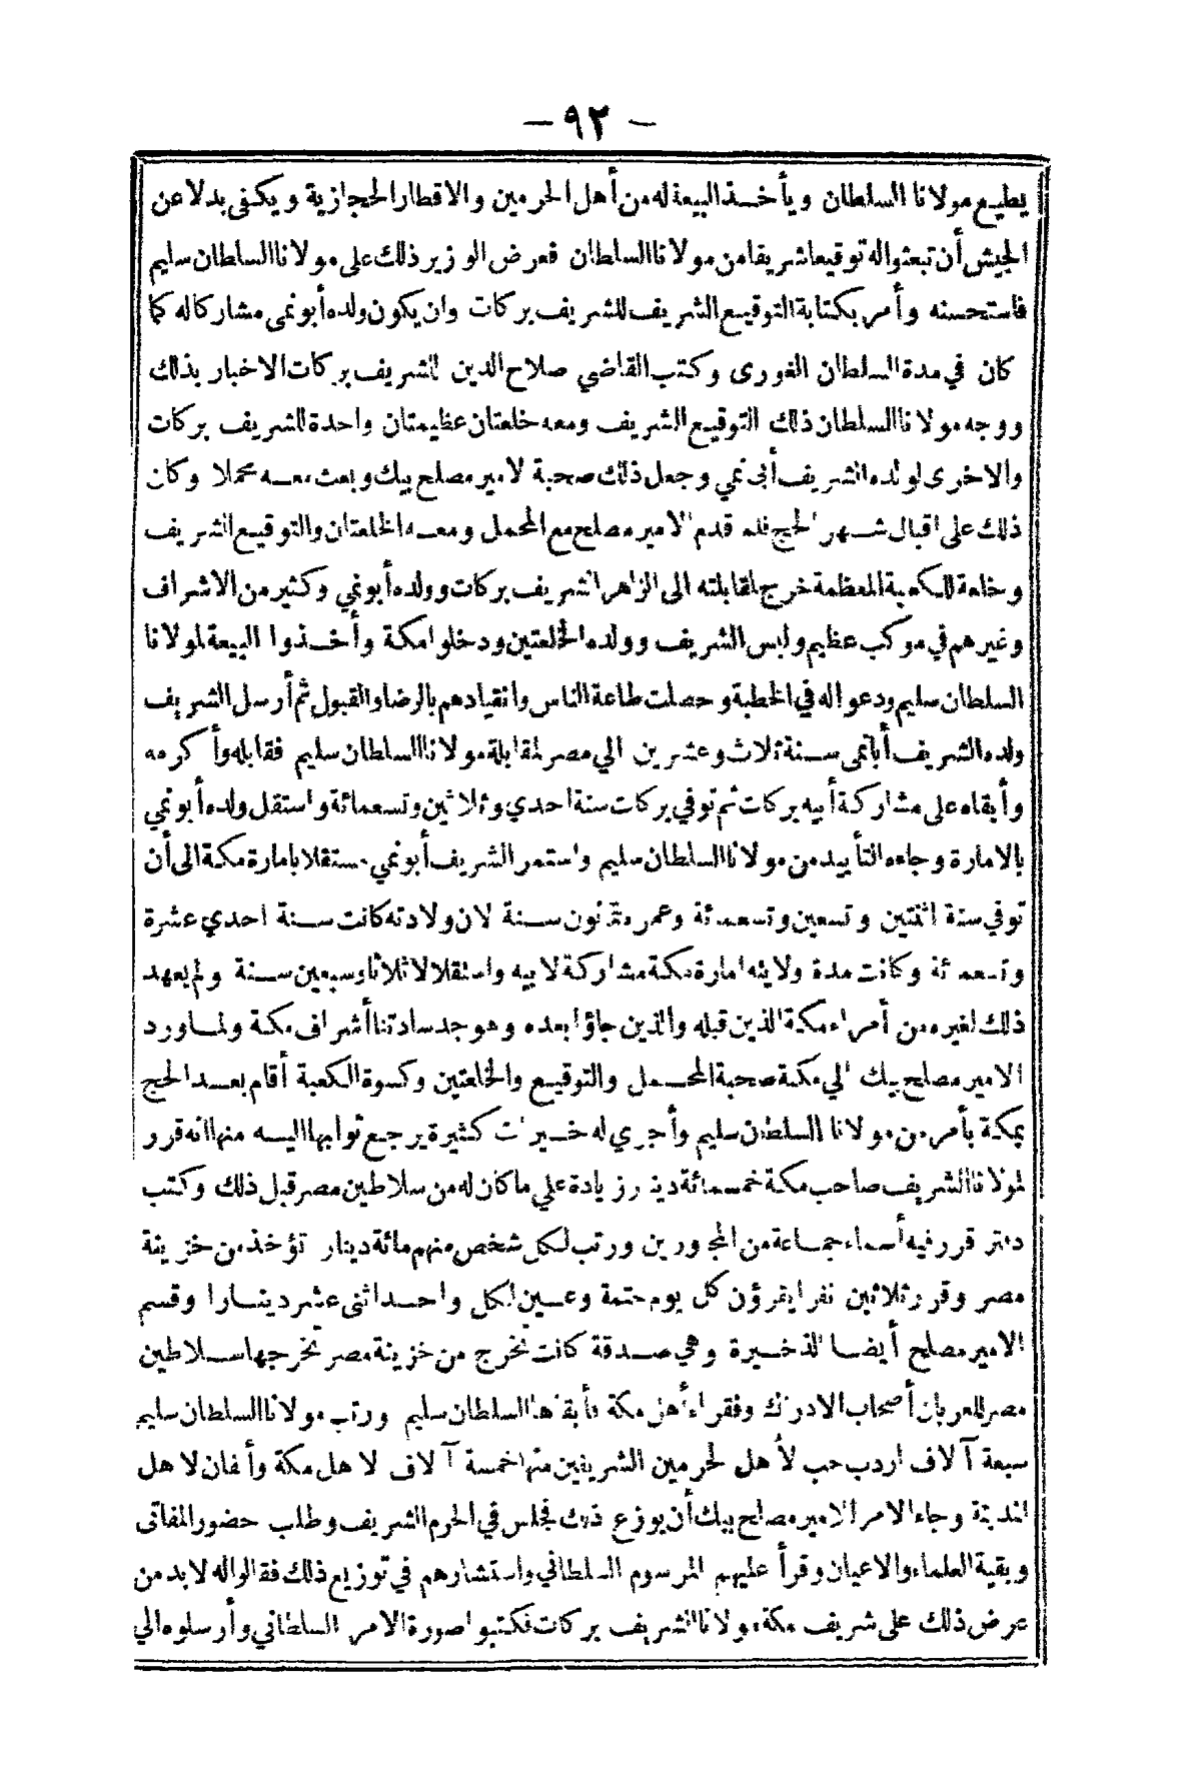 — ٩٢ —
يطيع مولانا السلطان ويأخذ البيعة له من أهل الحرمين والاقطار الحجازية ويكفى بدلا عن
الجيش أن تبعثوا له توقيعا شريفا من مولانا السلطان فعرض الوزير ذلك على مولانا السلطان سليم
فاستحسنه وأمر بكتابة التوقيع الشريف للشريف بركات وان يكون ولده أبو نمى مشاركا له كما
كان في مدة السلطان الغورى وكتب القاضي صلاح الدين للشريف بركات الاخبار بذلك
ووجه مولانا السلطان ذلك التوقيع الشريف ومعه خلعتان عظيمتان واحدة للشريف بركات
والاخرى لولده الشريف أبى نمي وجعل ذلك صحبة لامير مصلح بيك وبعث معه محملا وكان
ذلك على اقبال شهر الحج فلما قدم الامير مصلح مع المحمل ومعه الخلعتان والتوقيع الشريف
وخلعة للكعبة المعظمة خرج لمقابلته الى الزاهر الشريف بركات وولده أبو نمي وكثير من الاشراف
وغيرهم في موكب عظيم ولبس الشريف وولده الخلعتين ودخلوا مكة وأخذوا البيعة لمولانا
السلطان سليم ودعوا له في الخطبة وحصلت طاعة الناس وانقيادهم بالرضا والقبول ثم أرسل الشريف
ولده الشريف أبا نمى سنة ثلاث وعشرين الي مصر لمقابلة مولانا السلطان سليم فقابله وأكرمه
وأبقاه على مشاركة أبيه بركات ثم توفي بركات سنة احدي وثلاثين وتسعمائة واستقل ولده أبو نمي
بالامارة وجاءه التأييد من مولانا السلطان سليم واستمر الشريف أبو نمي مستقلا بامارة مكة الى أن
توفي سنة اثنتين وتسعين وتسعمائة وعمره ثمانون سنة لان ولادته كانت سنة احدي عشرة
وتسعمائة وكانت مدة ولايته امارة مكة مشاركة لابيه واستقلالا ثلاثا وسبعين سنة ولم يعهد
ذلك لغيره من أمراء مكة الذين قبله والذين جاؤا بعده وهو جد سادتنا أشراف مكة ولما ورد
الامير مصلح بيك الي مكة صحبة المحمل والتوقيع والخلعتين وكسوة الكعبة أقام بعد الحج
بمكة بأمر من مولانا السلطان سليم وأجري له خيرات كثيرة يرجع ثوابها اليه منها انه قرر
لمولانا الشريف صاحب مكة خمسمائة دينار زيادة علي ما كان له من سلاطين مصر قبل ذلك وكتب
دفتر قرر فيه أسماء جماعة من المجورين ورتب لكل شخص منهم مائة دينار تؤخذ من خزينة
مصر وقرر ثلاثين نفرا يقرؤن كل يوم ختمة وعين لكل واحد اثنى عشر دينارا وقسم
الامير مصلح أيضا الذخيرة وهي صدقة كانت تخرج من خزينة مصر تخرجها سلاطين
مصر للعربان أصحاب الادراك وفقراء أهل مكة فأبقاها السلطان سليم ورتب مولانا السلطان سليم
سبعة آلاف اردب حب لأهل لحرمين الشريفين منها خمسة آلاف لاهل مكة وألفان لاهل
المدينة وجاء الامر الامير مصلح بيك أن يوزع ذلك فجلس في الحرم الشريف وطلب حضور المفاتى
وبقية العلماء والاعيان وقرأ عليهم المرسوم السلطاني واستشارهم في توزيع ذلك فقالوا له لابد من
عرض ذلك على شريف مكة مولانا الشريف بركات فكتبوا صورة الامر السلطاني وأرسلوه الي